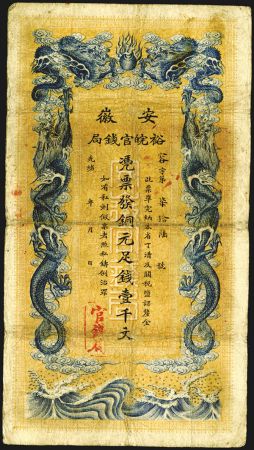 安徽
裕皖官錢局
容字第柒拾陸號
此票準完納本省丁漕及關稅鹽課釐金
憑票發銅元足錢壹千文
如有私刻假票者照私鑄例治罪
光緒年月日